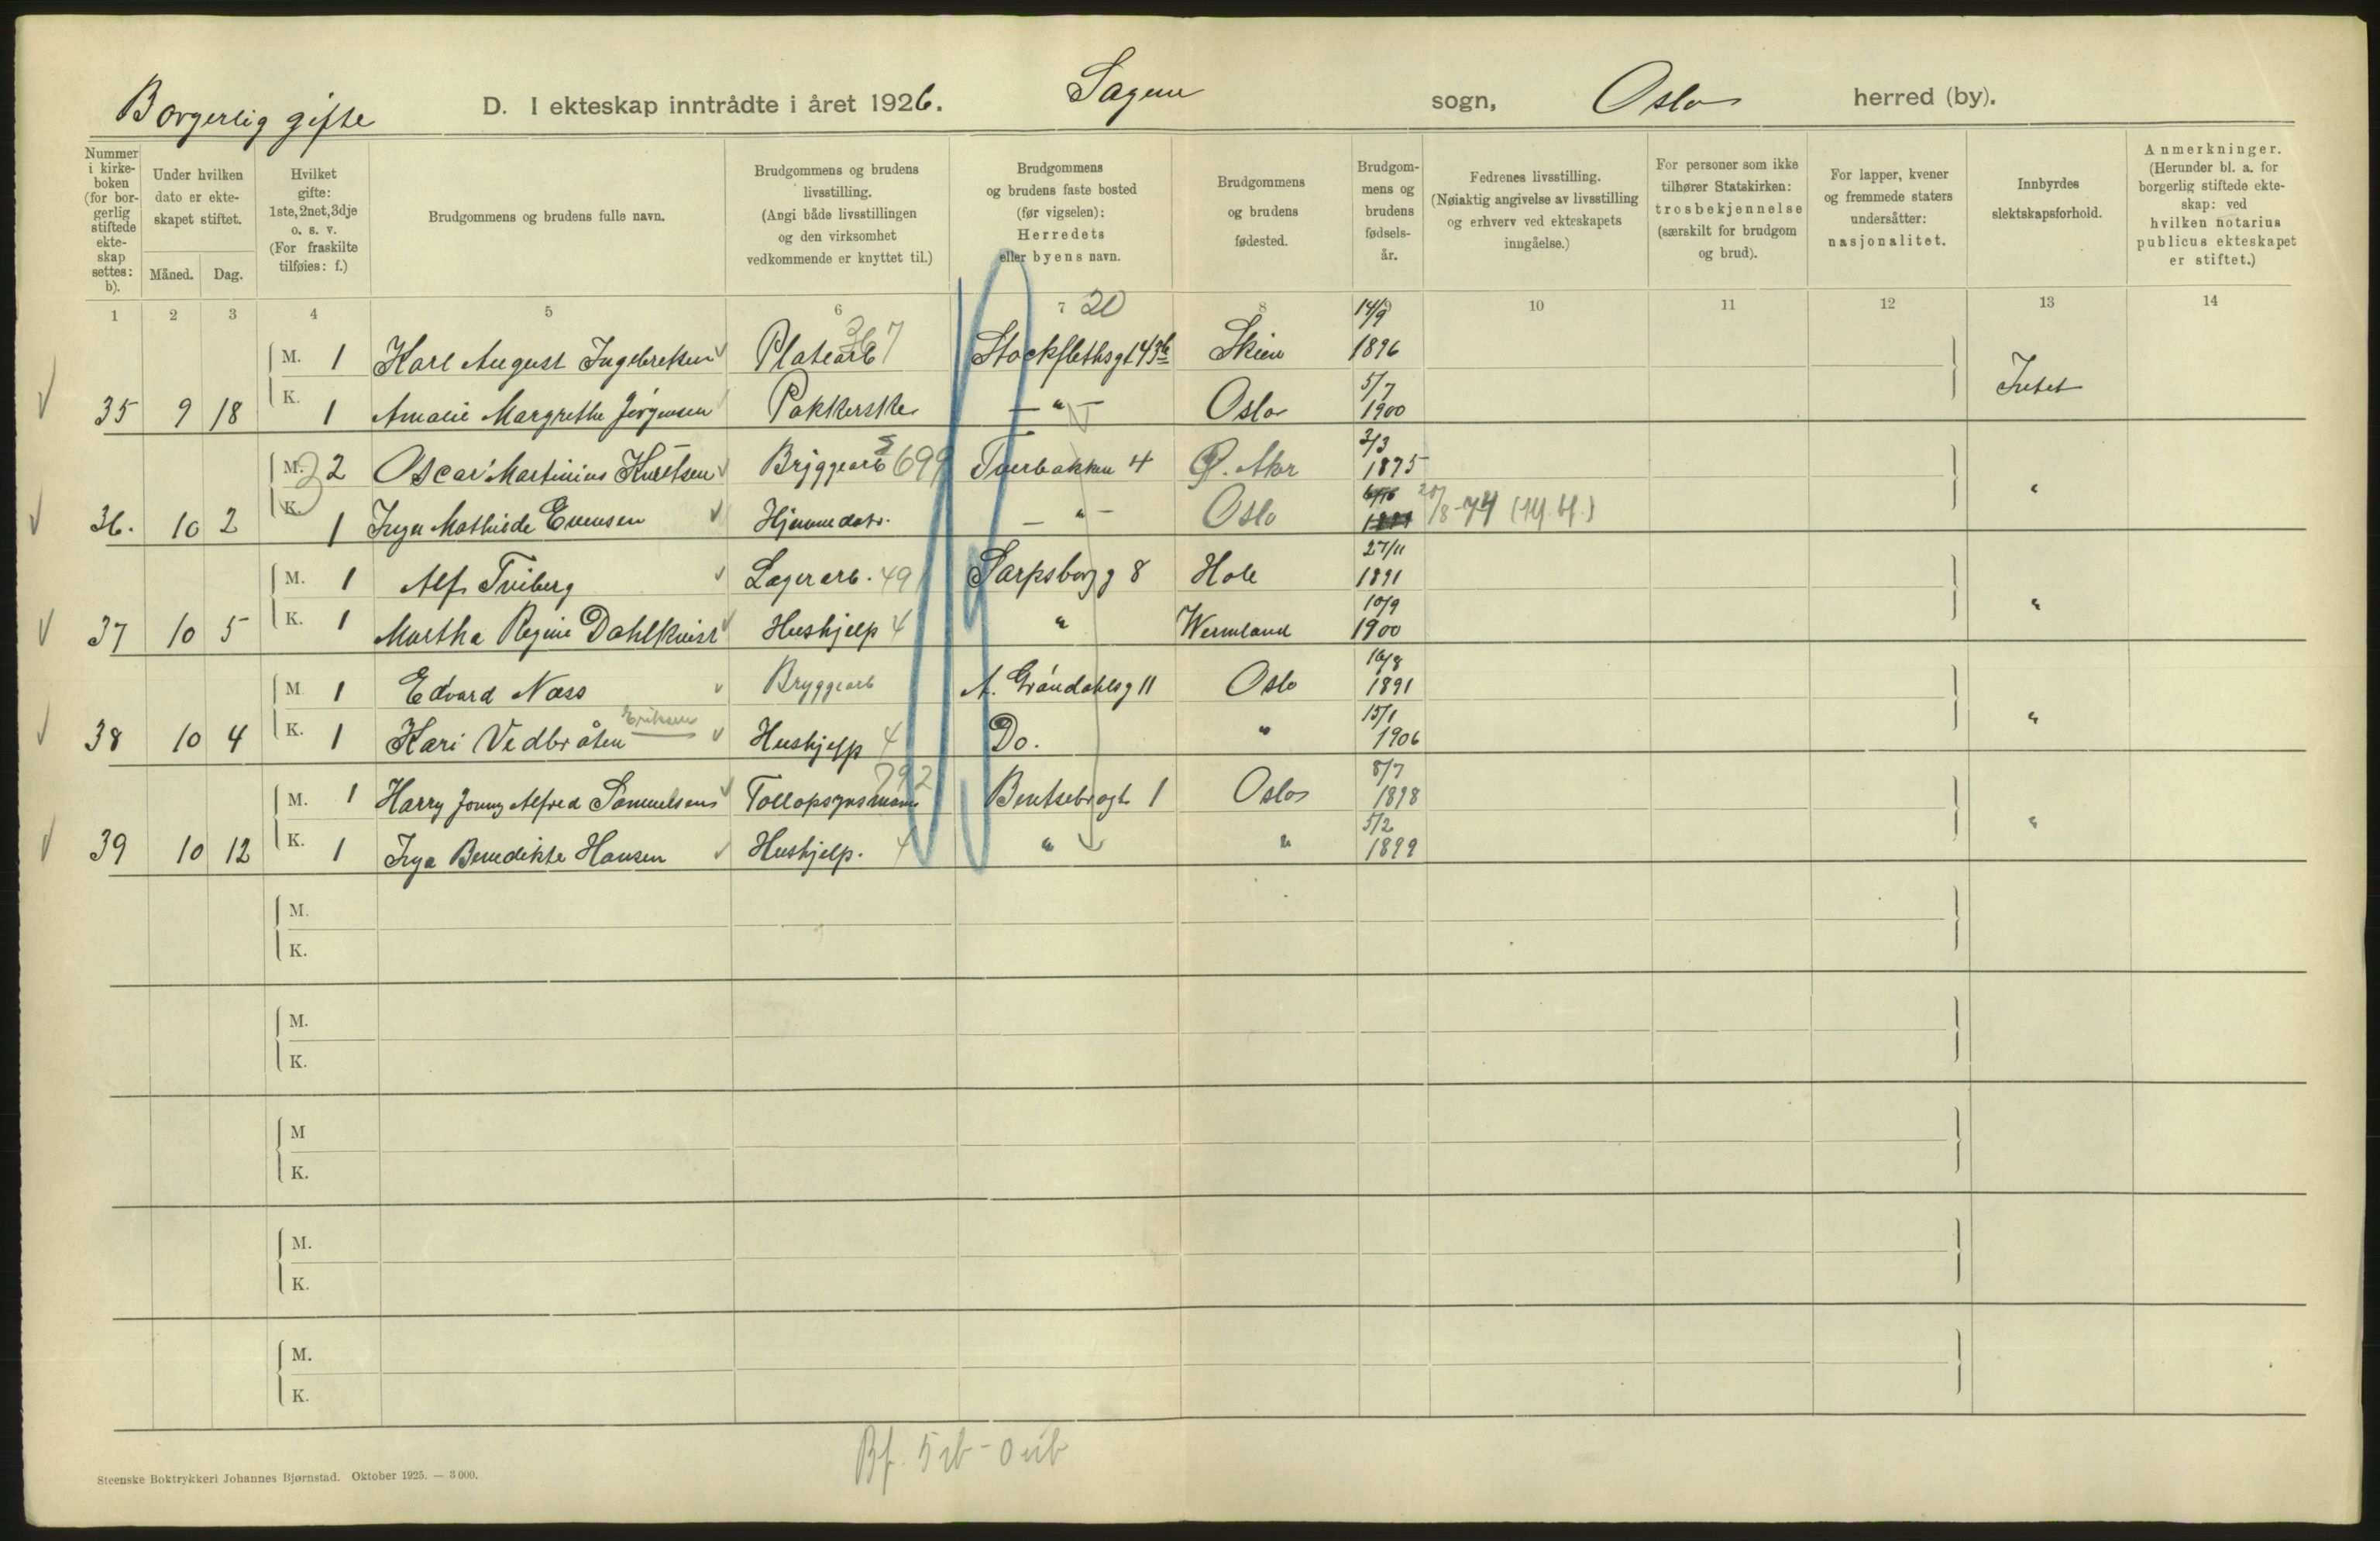 Borgerlig gifte D. I ekteskap inntrådte i året 1926. Sagene sogn, Oslo herred (by).
Nummer i kirkeboken (for borgerlig stiftede ekteskap settes: b).
Under hvilken dato er ekteskapet stiftet.
Måned. Dag.
Hvilket gifte: 1ste, 2net, 3dje o. s. v. (For fraskilte tilføies: f.)
Brudgommens og brudens fulle navn.
Brudgommens og brudens livsstilling. (Angi både livsstillingen og den virksomhet vedkommende er knyttet til.)
Brudgommens og brudens faste bosted (før vigselen): Herredets eller byens navn.
Brudgommens og brudens fødested.
Brudgommens og brudens fødselsår.
Fedrenes livsstilling. (Nøiaktig angivelse av livsstilling og erhverv ved ekteskapets inngåelse.)
For personer som ikke tilhører Statskirken: trosbekjennelse (særskilt for brudgom og brud).
For lapper, kvener og fremmede staters undersåtter: nasjonalitet.
Innbyrdes slektskapsforhold.
Anmerkninger. (Herunder bl. a. for borgerlig stiftede ekteskap: ved hvilken notarius publicus ekteskapet er stiftet.)
1 2 3 4 5 6 7 8 9 10 11 12 13 14
20
14/9
M. 1 Karl August Ingebretsen Platearb 367 Stockflethsgt 43b Skien 1896
5/7 Intet
35 9 18 K. 1 Amalie Margrethe Jørgensen Pakkerske — " — Oslo 1900
3/3
M. 2 Oscar Martinius Knutsen Bryggearb 699 Tverbakken 4 Ø. Aker 1875
20/8-74 "
36. 10 2 K. 1 Inga Mathilde Evensen Hjemmedatr. — " — Oslo
27/11
M. 1 Alf Tviberg Lagerarb. 491 Sarpsborgg 8 Hole 1891
10/9 "
37 10 5 K. 1 Martha Regine Dahlkvist Hushjelp 4 " Wermland 1900
16/8
M. 1 Edvard Næss Bryggearb A. Grøndahlsg 11 Oslo 1891
Eriksen 15/1 "
38 10 4 K. 1 Kari Vedbråten Hushjelp 4 Do. " 1906
792 8/7
M. 1 Harry Jonny Alfred Samuelsen Tollopsynsmann Bentsebrogt 1 Oslo 1898
5/2 "
39 10 12 K. 1 Inga Benedikte Hansen Hushjelp. 4 " " 1899
M.
K.
M.
K.
M
K.
M.
K.
M.
K.
Steenske Boktrykkeri Johannes Bjørnstad. Oktober 1925. — 3000.